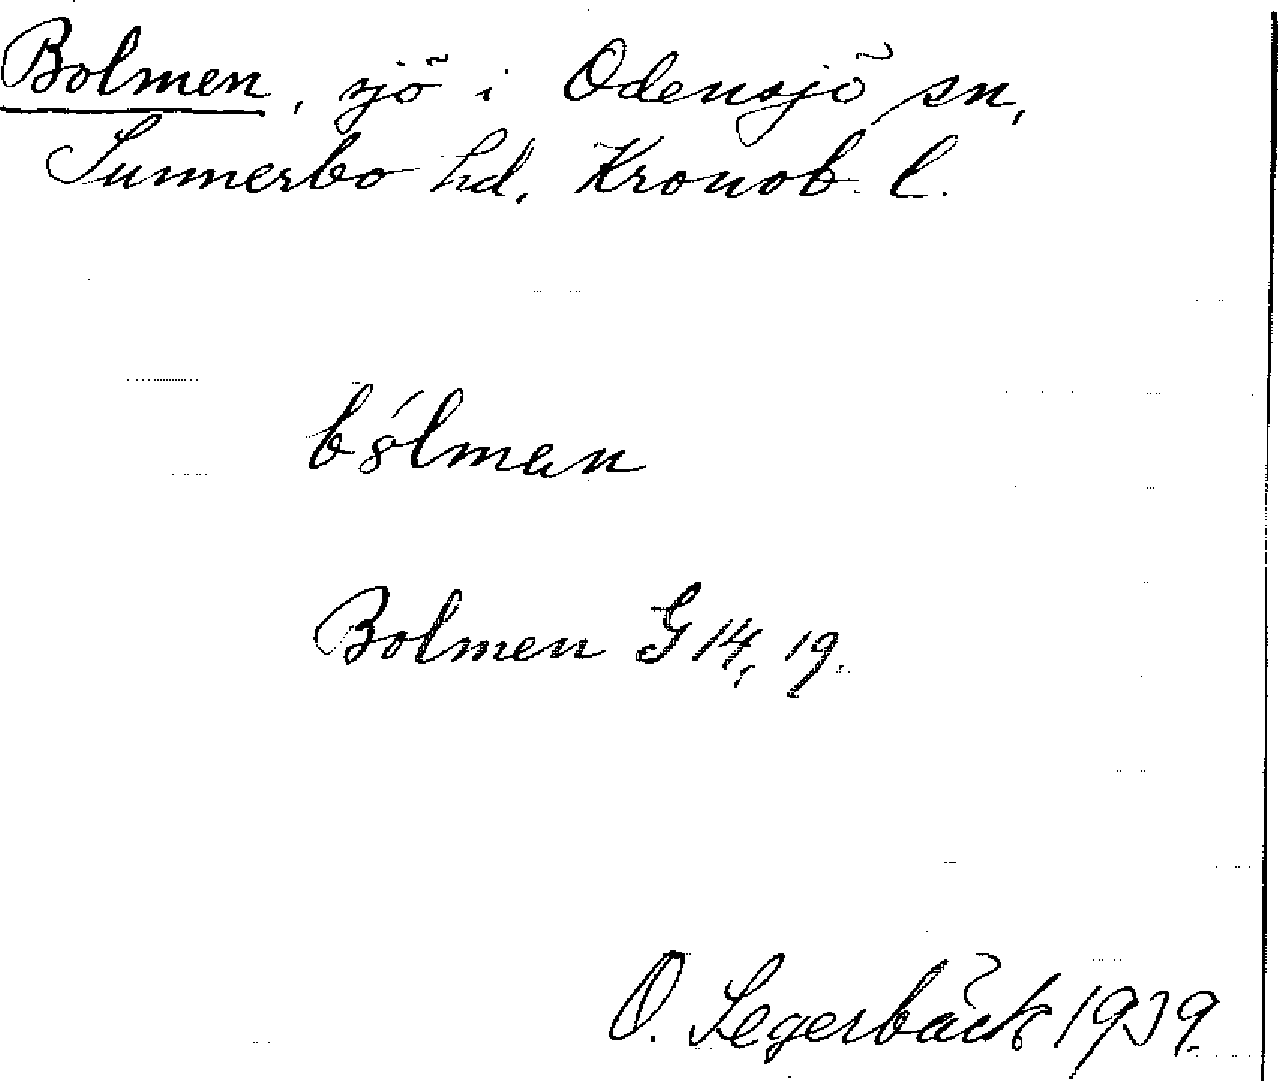 Bolmen, sjö i Odensjö sn,
Sunnerbo hd, Kronob. l.
bólman
Bolmen G 14, 19.
O. Segerbäck 1939.